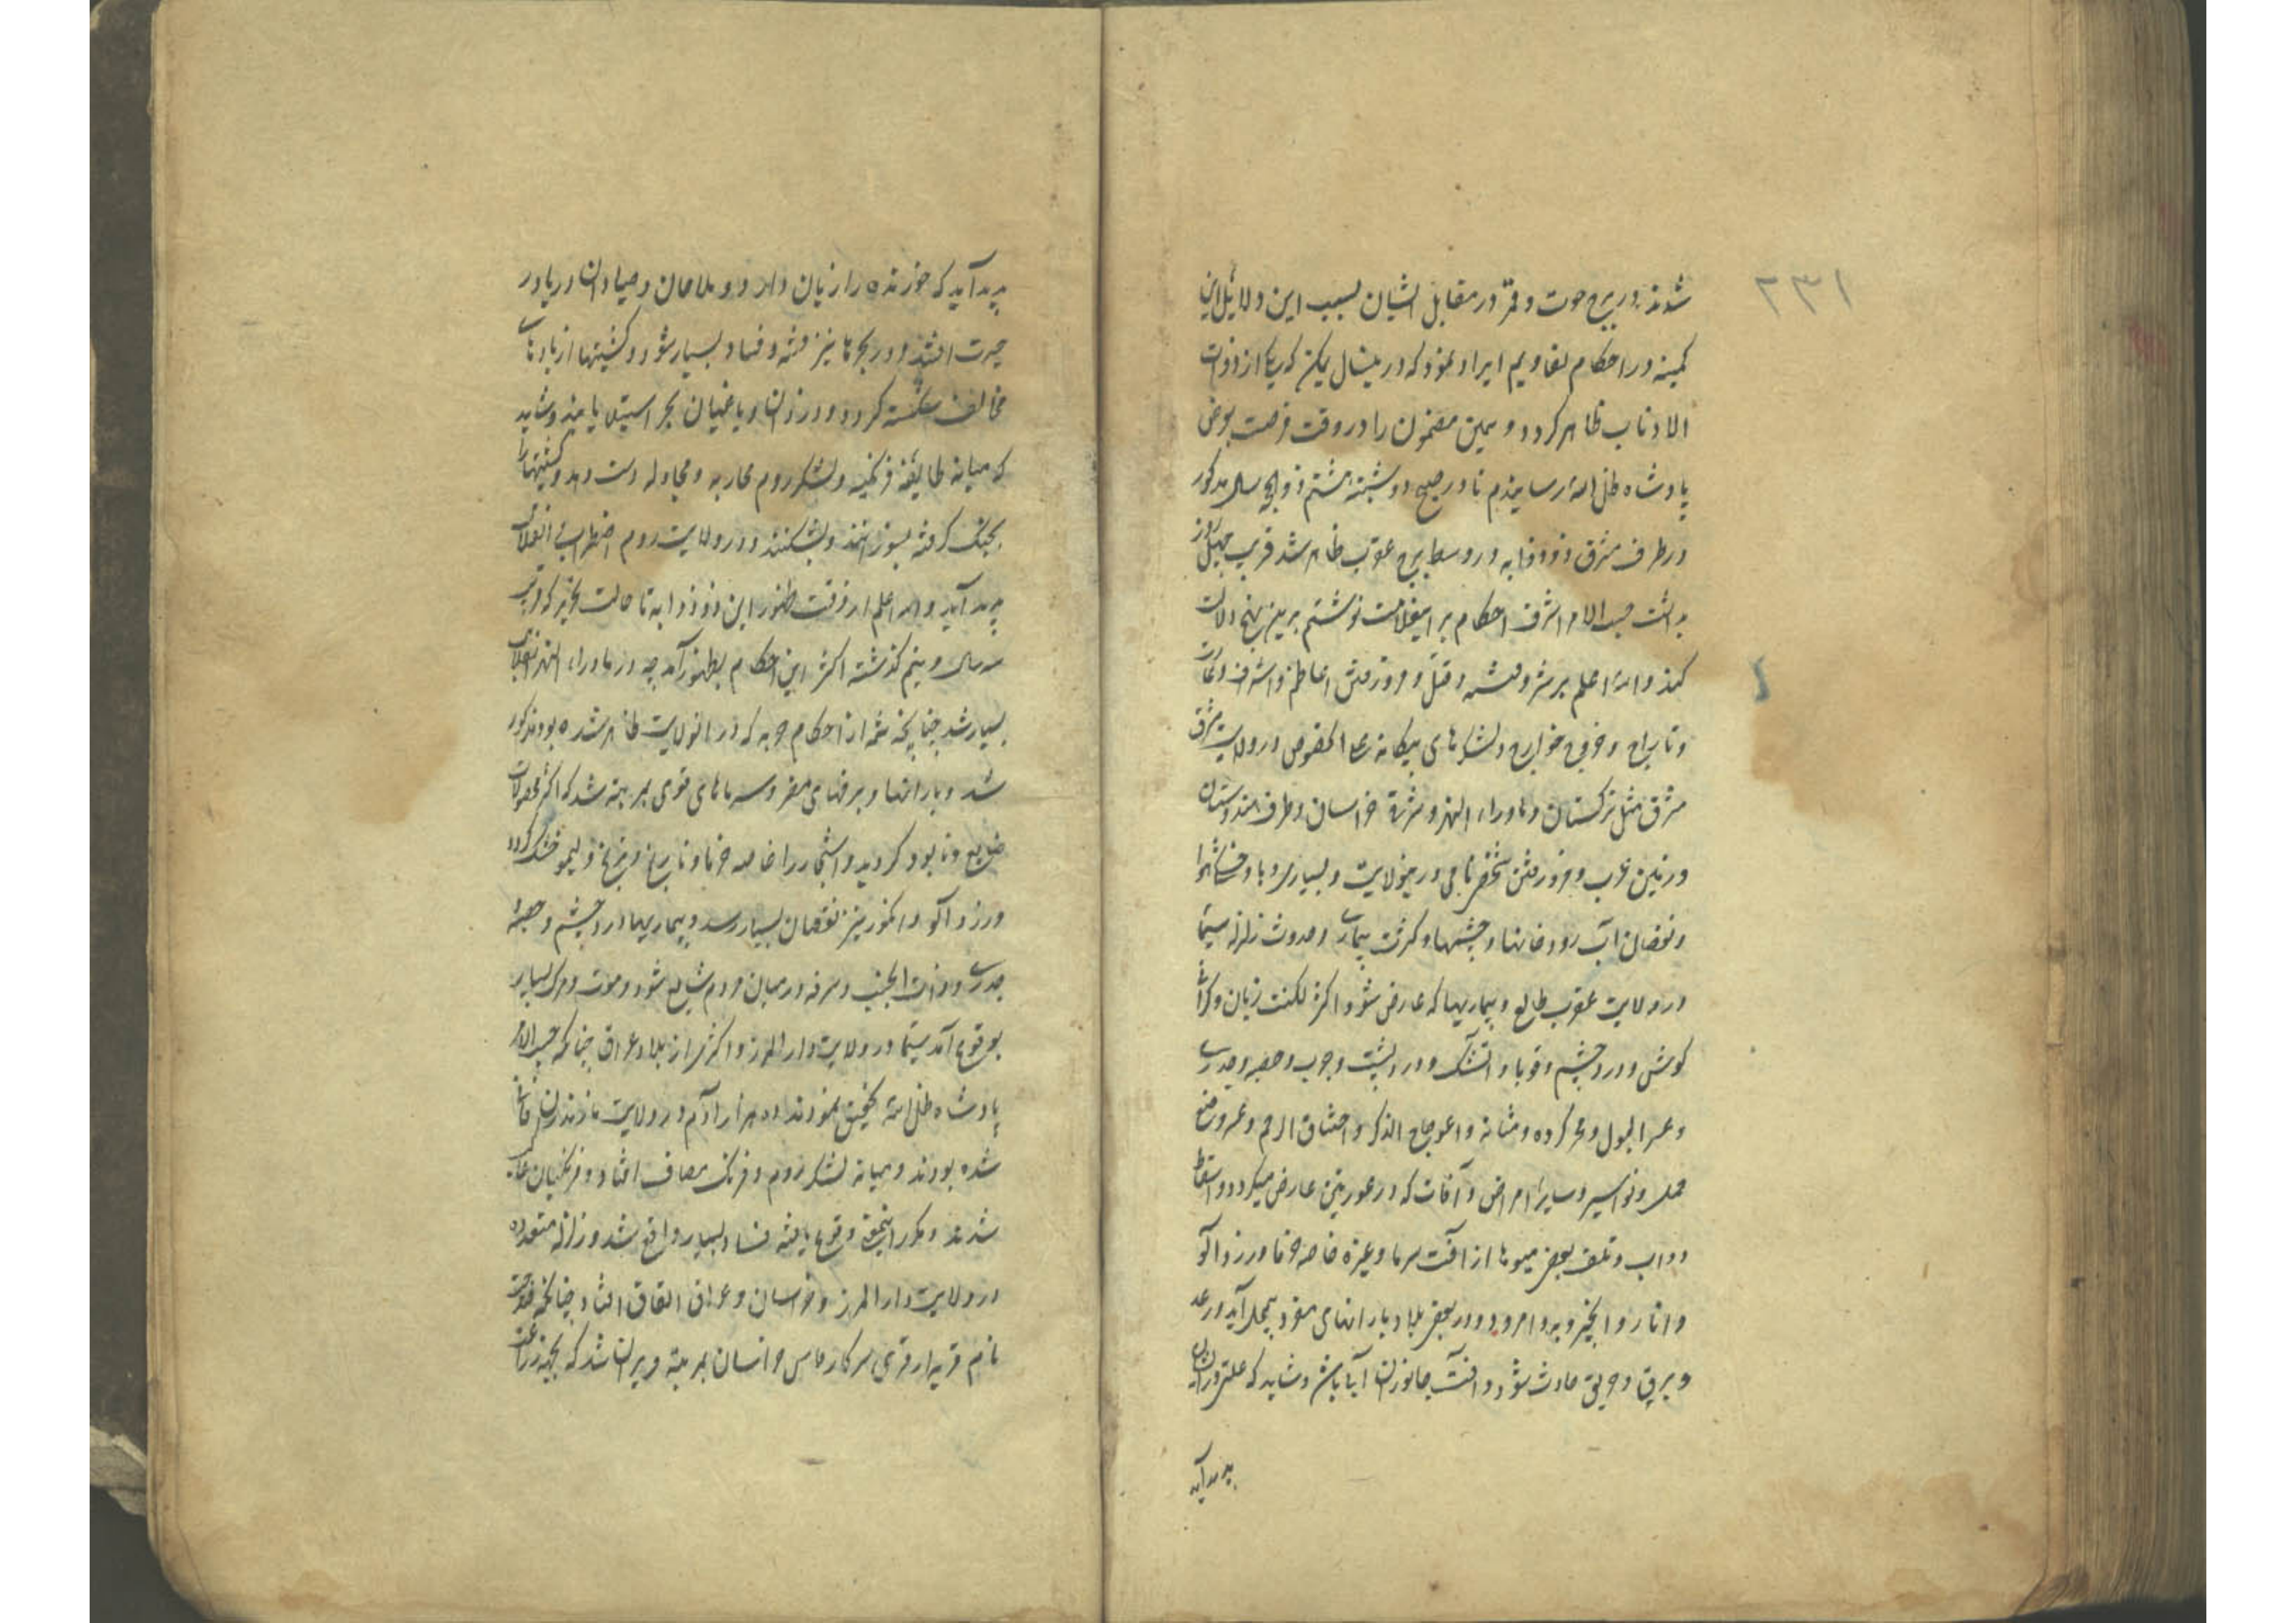 ۲۳۱
شدند در برج حوت و قمر در مقابل ایشان بسبب این دلائل این
کمینه در احکام تقاویم ایراد نمود که درینسال یمکن که یکی از ذوات
الاذناب ظاهر کردد و همین مضمون را در وقت فرصت بعرض
پادشاه ظل الله رسانیدم تا در صبح دوشنبه هشتم ذو الحجه سال مذکور
در طرف مشرق ذو ذوابه در وسط برج عقرب ظاهر شد قریب چهل روز
بداشت حسب الامر اشرف احکام بر اینعلامت نوشتم برین نهج دلالت
کند والله اعلم بر شر و فتنه و قتل و مردن اعاظم و اشراف و غارت
و تاراج و خروج خوارج و لشکرهای بیکانه علی الخصوص در ولایت مشرق
مشرق مثل ترکستان و ماوراء النهر و مشرق خراسان و طرف هندوستان
و زمین عرب و مردن شخص نامی درینولایت و بسیاری وبا و خشکی هوا
و نقصان آب رودخانها و چشمها و کثرت بیماری و حدوث زلزله سیما
در ولایت عقرب طالع و بیماریها که عارض شود اکثر لکنت زبان و کرانی
کوش و درد چشم و قوبا و آتشک و درد پشت و جرب و حصبه و جدری
و عسر البول و کرده و مثانه و اعوجاج الذکر و اختناق الرحم و عسر وضع
حمل و نواسیر و سایر امراض و آفات که در عورتین عارض میکردد و اسقاط
دواب و تلف بعض میوها از آفت سرما و غیره خاصه خرما و زردآلو
و انار و انجیر و به و امرود و در بعض بلاد بارانهای مفرد بیمحل آید و رعد
و برق و حریق حادث شود و آفت جانوران آبی باشد و شاید که علتی در ان
پدید آید
پدید آید که خورنده را زیان دارد و ملاحان و صیادان دریا در
حیرت افتند و در بحرها نیز فتنه و فساد بسیار شود و کشتیها از بادهای
مخالف شکسته کردد و دزدان و یاغیان بحر استیلا یابند و شاید
که میانه طایفه فرنکیه و لشکر روم محاربه و مجادله دست دهد و کشتیها را
بجنک کرفته بسوزانند و بشکنند و در ولایت روم اضطراب و انقلاب
پدید آید والله اعلم از وقت ظهور این ذو ذوابه تا حالت تحریر که قریب
سه سال و نیم کذشته اکثر این احکام بظهور آمد چه در ماوراء النهر انقلاب
بسیار شد چنانچه شمه از احکام حربه که در انولایت ظاهر شده بود مذکور
شد و بارانها و برفهای مفرد و سرماهای قوی بمرتبه شد که اکثر محصولات
ضایع و نابود کردید و اشجار را خاصه خرما و نارنج و ترنج و لیمو خشک کردد
و زردآلو و انکور نیز نقصان بسیار رسد و بیماریها درد چشم و حصبه
جدری و ذات الجنب و سرفه در میان مردم شایع شود و موت و مرک بسیار
بوقوع آمد سیما در ولایت دار المرز و اکثری از بلاد عراق چنانکه حسب الامر
پادشاه ظل الله تحقیق نمودند ده هزار آدم در ولایت مازندران فانی
شده بودند و میانه لشکر روم و فرنک مصاف افتاد و فرنکیان غالب
شدند و مکرر اینحق وقوع یافته فساد بسیار واقع شد و زلزله متعدده
در ولایت دار المرز و خراسان و عراق اتفاق افتاد چنانچه
نام قریه از قرای سرکار خاص خراسان بمرتبه ویران شد که